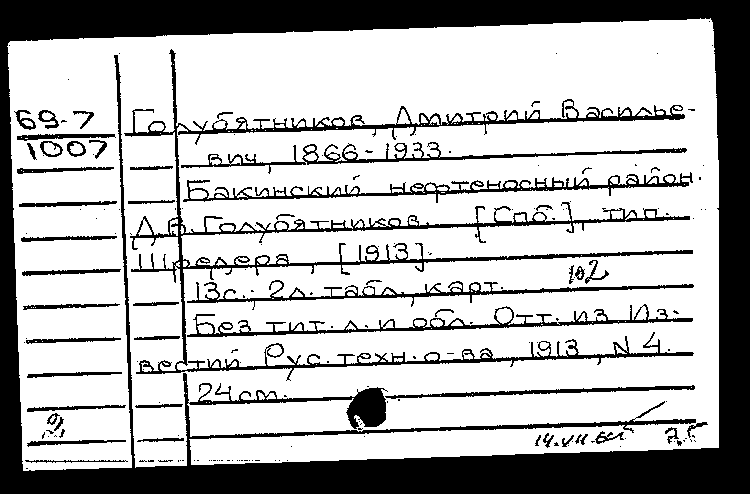 69-7 Голубятников, Дмитрий Василье-
1007 вич, 1866-1933.
Бакинский нефтеносный район.
Д.В. Голубятников. [Спб.], тип.
Шредера, [1913].
13с.; 2л. табл., карт. 102
Без тит. л. и обл. Отт. из Из-
вестий Рус. техн. о-ва, 1913, N 4.
24 см.
2